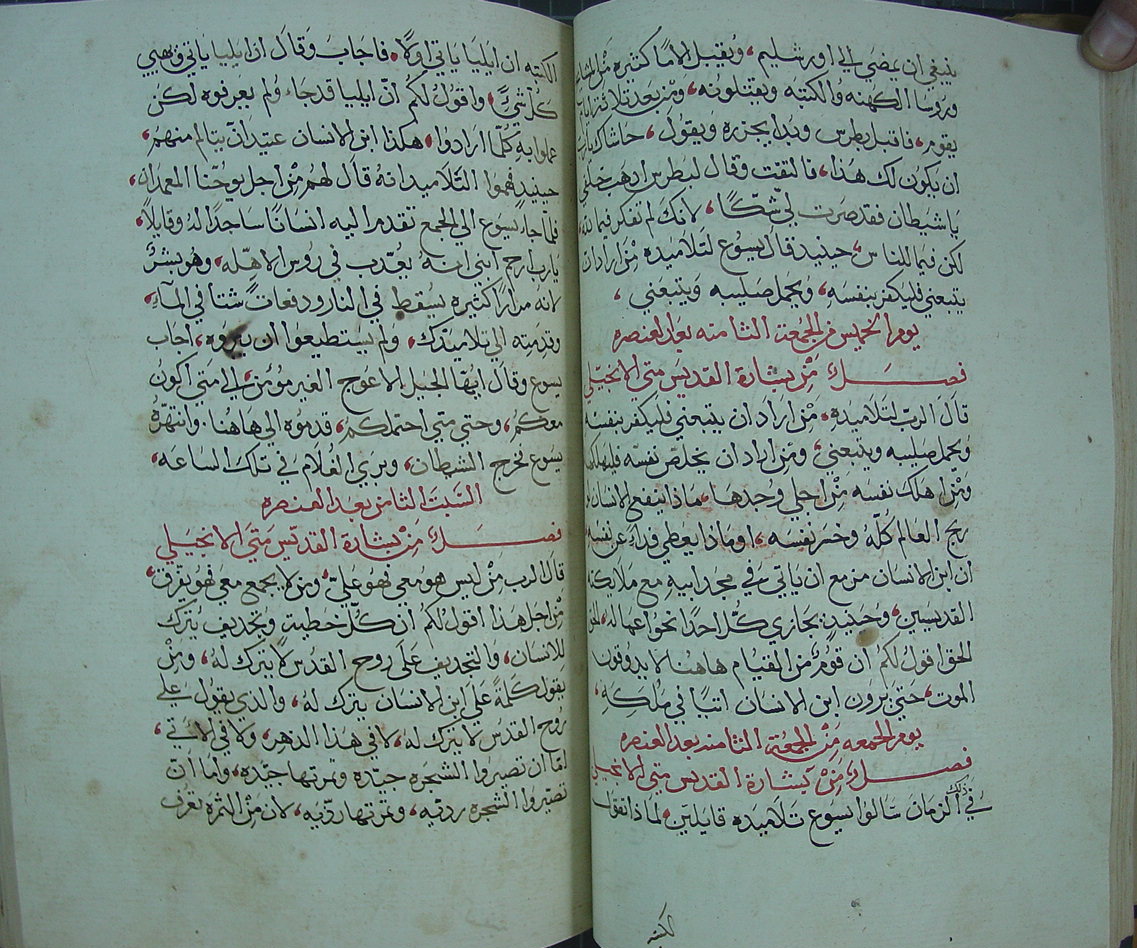 ينبغي ان يمضي الي اورشليم، ويقبل الامًا كثيره من المشايخ
وروسا الكهنه والكتبه ويقتلونه، ومن بعد تلاثة ايام
يقوم، فاقبل بطرس وبدا يجزره ويقول، حاشاك يارب
ان يكون لك هذا، فالتفت وقال لبطرس ادهب خلفي
ياشيطان فقد صرت لي شكًا، لانك لم تفكر فيما لله
لكن فيما للناس، حينيد قال يسوع لتلاميده من اراد ان
يتبعني فليكفر بنفسه، ويحمل صليبه ويتبعني،
يوم الخميس من الجمعة الثامنه بعد العنصره
فصل من بشارة القديس متي الانجيلي
قال الرب لتلاميده، من اراد ان يتبعني فليكفر بنفسه
ويحمل صليبه ويتبعني، ومن اراد ان يخلص نفسه فليهلكها
ومن اهلك نفسه من اجلي وجدها، ماذا ينفع الانسان
ربح العالم كلّه وخسر نفسه، اوماذا يعطي فداءً عن نفسه
ان ابن الانسان مزمع ان ياتي في مجد ابيه مع ملايكته
القديسين، وحينيد يجازي كل احدًا نحو اعماله، الحق
الحق اقول لكم ان قومٌ من القيام هاهنا لا يدوقون
الموت، حتي يرون ابن الانسان اتيًا في ملكه،
يوم الجمعه من الجمعة الثامنه بعد العنصره
فصل من بشارة القديس متي الانجيلي
في ذلك الزمان سالوا يسوع تلاميده قايلين، لماذا تقول
الكتبه
الكتبه ان ايليا ياتي اولًا، فاجاب وقال ان ايليا ياتي ويهيي
كل شيً، واقول لكم انّ ايليا قد جاء ولم يعرفوه لكن
عملوا به كلّما ارادوا، هكذا ابن الانسان عتيد انّ يتالم منهم،
حينيد فهموا التلاميد انهُ قال لهم من اجل يوحنا المعمدان
فلمّا جاء يسوع الي الجمع تقدم اليه انسانًا ساجدًا لهُ وقايلًا،
يارب ارحم ابني انهُ يعُدّب في روس الاهلّه، وهو بشرٌ
لانه مرارًا كثيره يسقط في النار ودفعاتً شتا في المآء،
وقدمته الي تلاميدك، ولم يستطيعوا ان يبروه، اجاب
يسوع وقال ايها الجيل الاعوج الغير مومن، الي متي اكون
معكم، وحتي متي احتملكم، قدموه الي هاهنا، وانتهرهُ
يسوع فخرج الشيطان، وبري الغلام في تلك الساعه،
السبت الثامن بعد العنصره
فصل من بشارة القديس متي الانجيلي
قال الرب من ليس هو معي فهو عليّ، ومن لا يجمع معي فهو يفرق،
من اجل هذا اقول لكم ان كل خطية وتجديف يترك
للانسان، والتجديف علي روح القدس لا يترك لهُ، ومن
يقول كلمةً علي ابن الانسان يترك لهُ، والدي يقول علي
روح القدس لا يترك له، لا في هذا الدهر، ولا في الاتي،
امّا ان تصيروا الشجره جيّده وثمرتها جيّده، واما انّ
تصيّروا الشجره رديّه، وثمرتها رديّه، لان من الثمره تعرف